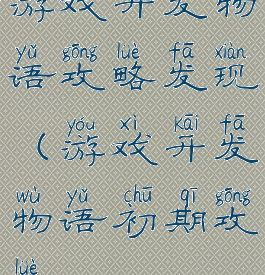 游戏开发物
yǔ gōng lüè fā xiàn
语攻略发现
yóu xì kāi fā
（游戏开发
wù yǔ chū qī gōng
物语初期攻
lüè